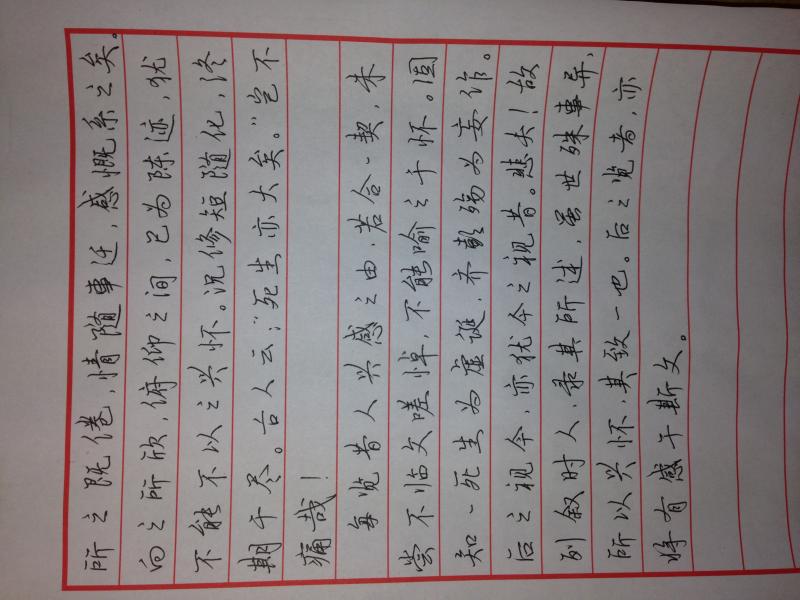 所之既倦，情随事迁，感慨系之矣。
向之所欣，俯仰之间，已为陈迹，犹
不能不以之兴怀。况修短随化，终
期于尽。古人云：“死生亦大矣。”岂不
痛哉！
每览昔人兴感之由，若合一契，未
尝不临文嗟悼，不能喻之于怀。固
知一死生为虚诞，齐彭殇为妄作。
后之视今，亦犹今之视昔。悲夫！故
列叙时人，录其所述，虽世殊事异，
所以兴怀，其致一也。后之览者，亦
将有感于斯文。